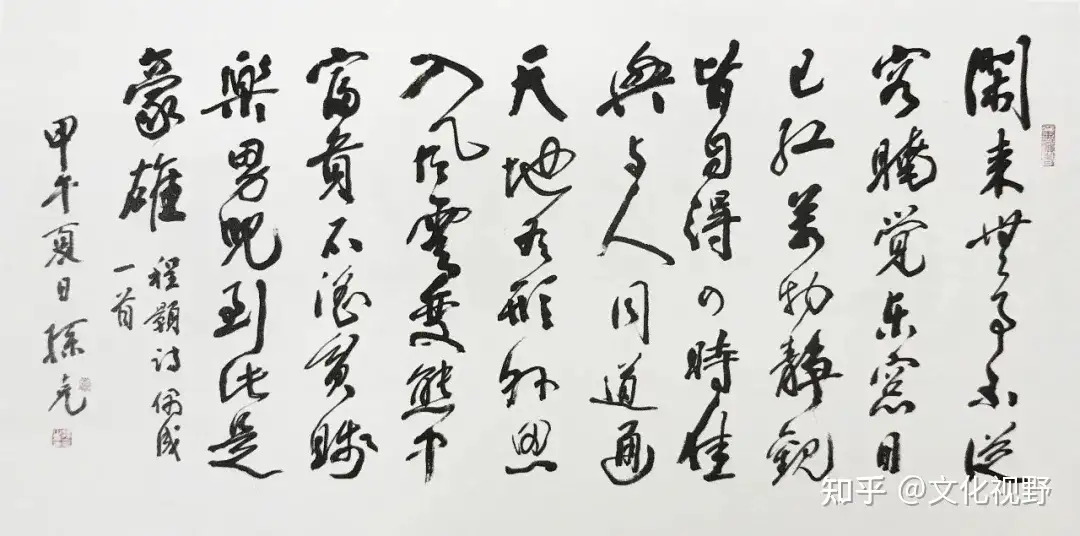 閑来無事不從
容睡覺東窗日
已紅萬物靜觀
皆自得四時佳
興与人同道通
天地有形外思
入風雲變態中
富貴不淫貧賤
樂男兒到此是
豪雄
程顥诗偶成
一首
甲午夏日孫克
知乎 @文化视野